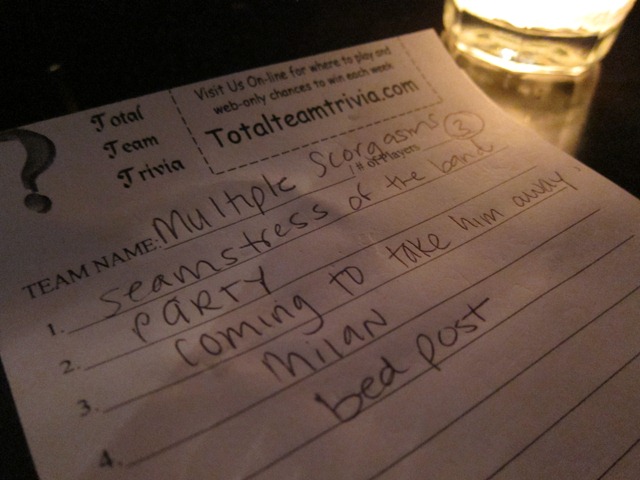 ?
Total
Team
Trivia
Visit Us On-line for where to play and
web-only chances to win each week.
Totalteamtrivia.com
TEAM NAME: Multiple Scorgasms
# of Players 3
1. Seamstress of the band
2. PARTY
3. coming to take him away
4. Milan
bed post